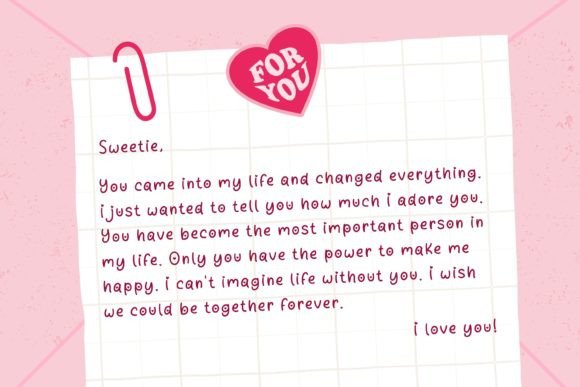 FOR
YOU
Sweetie,
You came into my life and changed everything.
i just wanted to tell you how much i adore you.
You have become the most important person in
my life. Only you have the power to make me
happy. i can't imagine life without you. i wish
we could be together forever.
i love you!